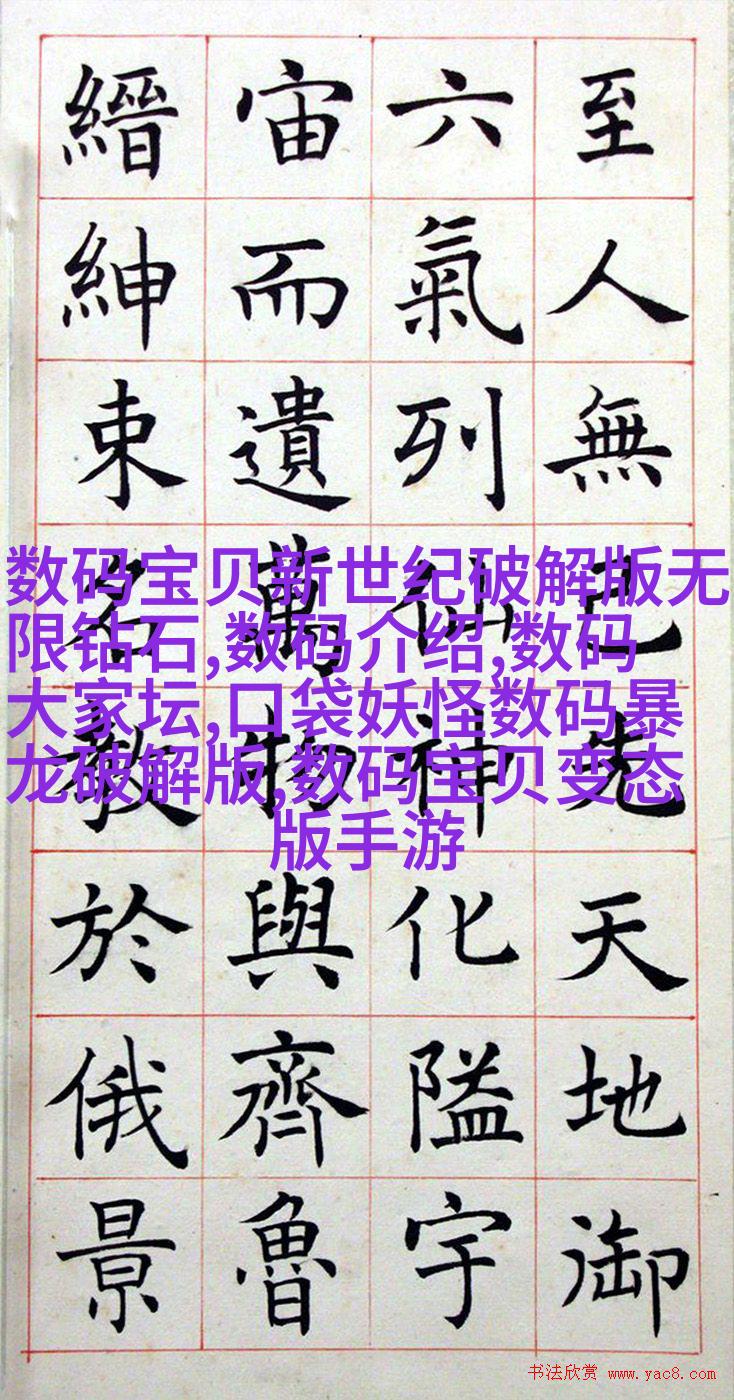 至人無己先天地御
六氣列仙神化隘宇
宙而遺萬物與齊魯
縉紳束名教於俄景
数码宝贝新世纪破解版无
限钻石,数码介绍,数码
大家坛,口袋妖怪数码暴
龙破解版,数码宝贝变态
版手游
书法欣赏 www.yac8.com